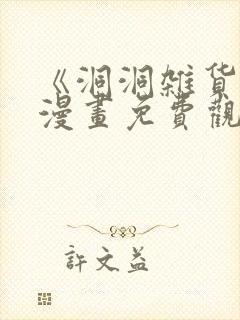 《洞洞雑货
漫畫免費觀
許文益